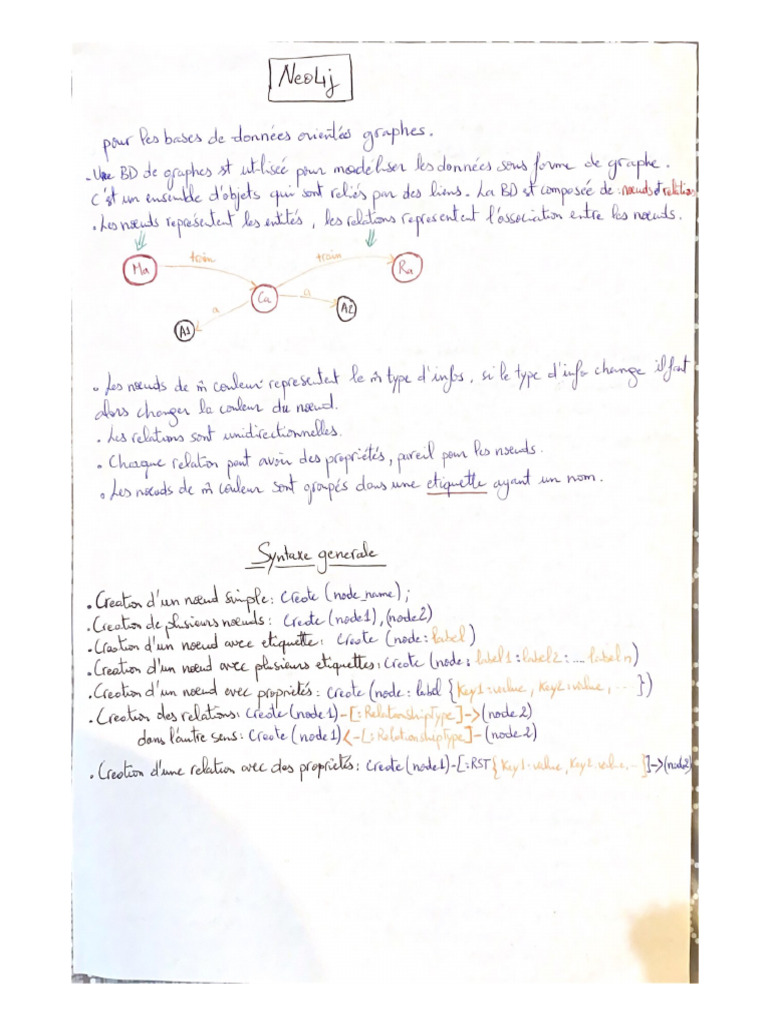 Neo4j
pour les bases de données orientés graphes.
. Une BD de graphes st utilisée pour modéliser les données sous forme de graphe.
C'st un ensemble d'objets qui sont reliés par des liens. La BD est composée de : nœuds et relations
. Les nœuds représentent les entités, les relations representent l'association entre les nœuds.
train train
Ma Ra
Ca
a a
A1 A2
. Les nœuds de m̂ couleur representent le m̂ type d'infos, si le type d'info change il faut
alors changer la couleur du nœud.
. Les relations sont unidirectionnelles.
. Chaque relation peut avoir des propriétés, pareil pour les nœuds.
. Les nœuds de m̂ couleur sont groupés dans une etiquette ayant un nom.
Syntaxe generale
. Creation d'un nœud simple : Create (node_name) ;
. Creation de plusieurs nœuds : Create (node1), (node2)
. Creation d'un nœud avec etiquette : Create (node : label)
. Creation d'un nœud avec plusieurs etiquettes : Create (node : label1 : label2 : .... label n)
. Creation d'un nœud avec propriétés : Create (node : label {Key1 : value, Key2 : value, ... })
. Creation des relations : Create (node1) -[: RelationshipType]-> (node2)
dans l'autre sens : Create (node1) <-[: RelationshipType]- (node2)
. Creation d'une relation avec des propriétés : Create (node1) -[:RST {Key1 : value, Key2 : value, .. }]-> (node2)